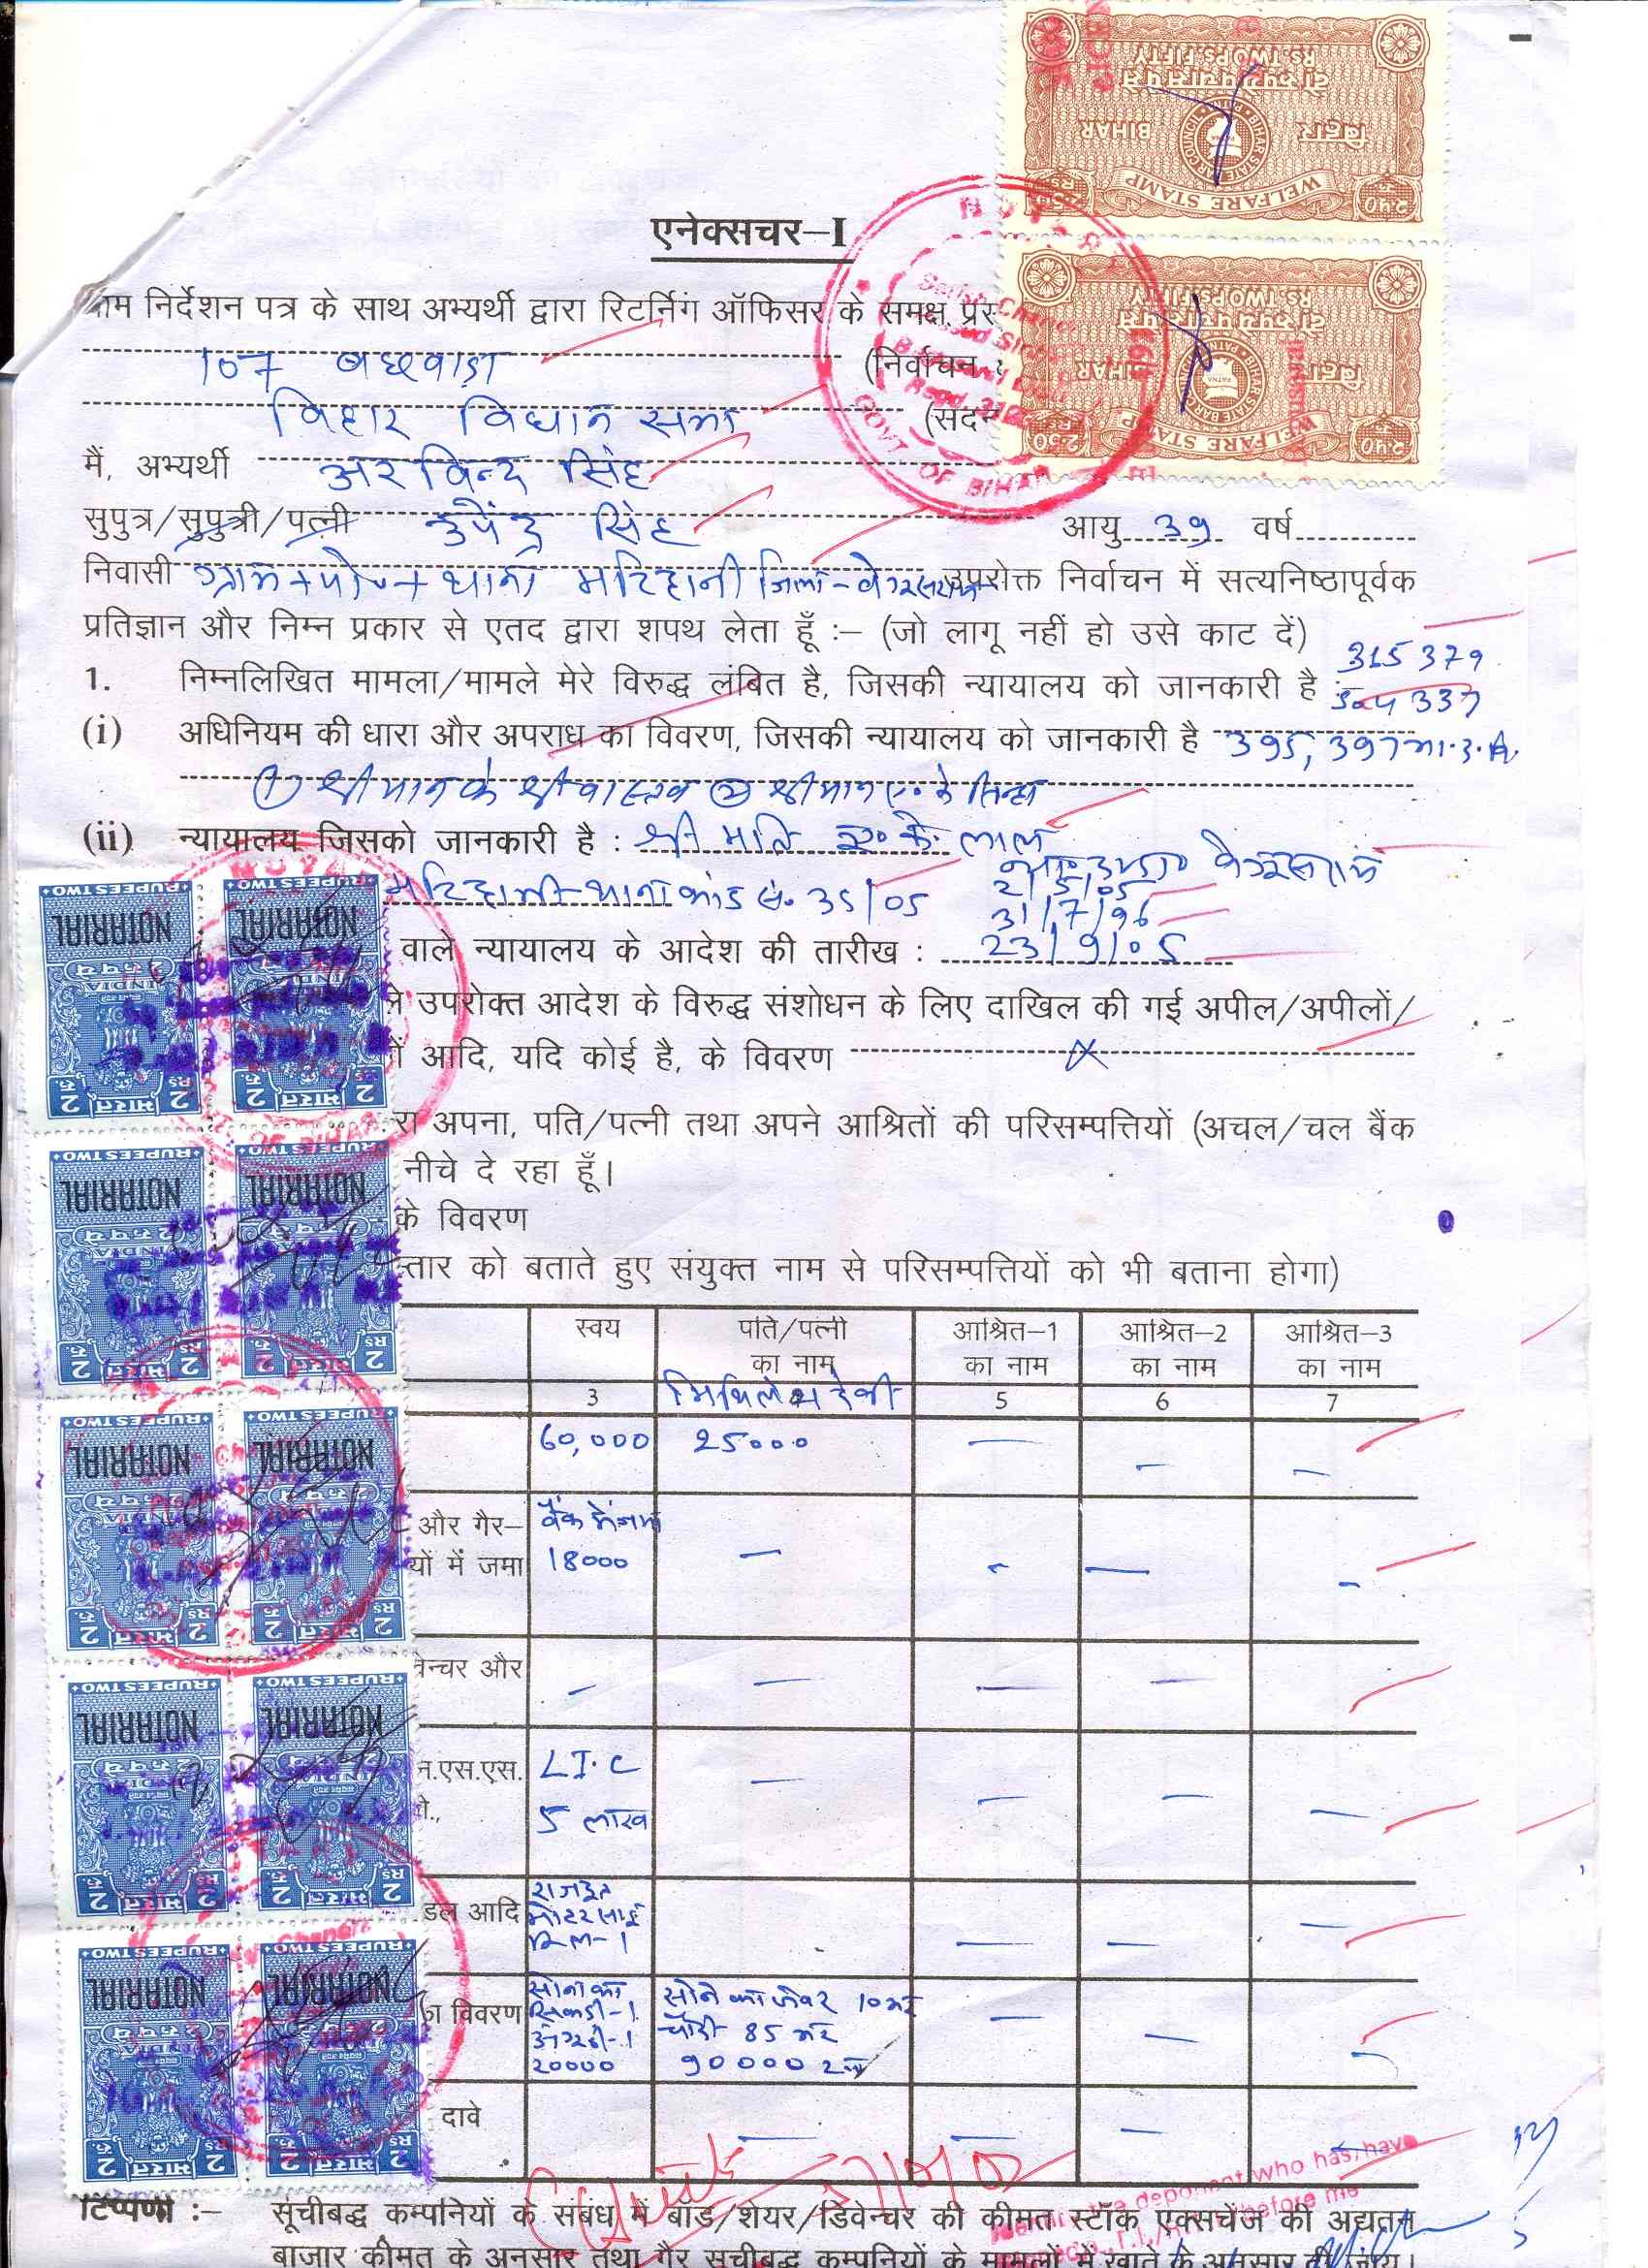 एनेक्सचर–I
नाम निर्देशन पत्र के साथ अभ्यर्थी द्वारा रिटर्निंग ऑफिसर के समक्ष प्रस
107 बछवाड़ा (निर्वाचन
बिहार विधान सभा (सदन
मैं, अभ्यर्थी अरविन्द सिंह
सुपुत्र/सुपुत्री/पत्नी उपेंद्र सिंह आयु 39 वर्ष
निवासी ग्राम+पो०+थाना मटिहानी जिला-बेगूसराय उपरोक्त निर्वाचन में सत्यनिष्ठापूर्वक
प्रतिज्ञान और निम्न प्रकार से एतद द्वारा शपथ लेता हूँ :– (जो लागू नहीं हो उसे काट दें)
315 379
1. निम्नलिखित मामला/मामले मेरे विरुद्ध लंबित है, जिसकी न्यायालय को जानकारी है :
337
(i) अधिनियम की धारा और अपराध का विवरण, जिसकी न्यायालय को जानकारी है 395, 397
① श्रीमान के श्रीवास्तव ② श्रीमान ए० के सिन्हा
(ii) न्यायालय जिसको जानकारी है : श्री मति ए० के. लाल
बेगूसराय
मटिहानी थाना कांड सं. 35/05 2/5/05
31/7/96
वाले न्यायालय के आदेश की तारीख : 23/9/05
उपरोक्त आदेश के विरुद्ध संशोधन के लिए दाखिल की गई अपील/अपीलों/
ों आदि, यदि कोई है, के विवरण X
रा अपना, पति/पत्नी तथा अपने आश्रितों की परिसम्पत्तियों (अचल/चल बैंक
नीचे दे रहा हूँ।
के विवरण
स्तार को बताते हुए संयुक्त नाम से परिसम्पत्तियों को भी बताना होगा)
स्वय पति/पत्नी आश्रित–1 आश्रित–2 आश्रित–3
का नाम का नाम का नाम का नाम
3 मिथिलेश देवी 5 6 7
60,000 25000 — — —
और गैर– बैंक में जमा
यों में जमा 18000 — - — -
वेन्चर और — — — —
न.एस.एस. L I.C — — — —
5 लाख
राजदूत
डल आदि मोटर साई
किल-1 — — —
सोना का सोने का जेवर 10 भर
विवरण सिकडी-1 चाँदी 85 भर — — -
अंगूठी-1
20000 90000
दावे — — — —
who has/have
before me
टिप्पणी :– सूचीबद्ध कम्पनियों के संबंध में बॉड/शेयर/डिवेन्चर की कीमत स्टॉक एक्सचेंज की अद्यतन
बाजार कीमत के अनुसार तथा गैर सूचीबद्ध कम्पनियों के मामलों में खाते के अनुसार दी जाय।
WELFARE STAMP
BIHAR बिहार
दो रुपये पचास पैसे
RS. TWO PS. FIFTY
WELFARE STAMP
BIHAR बिहार
दो रुपये पचास पैसे
RS. TWO PS. FIFTY
NOTARY
GOVT OF BIHAR
NOTARIAL
RUPEES TWO
भारत
INDIA